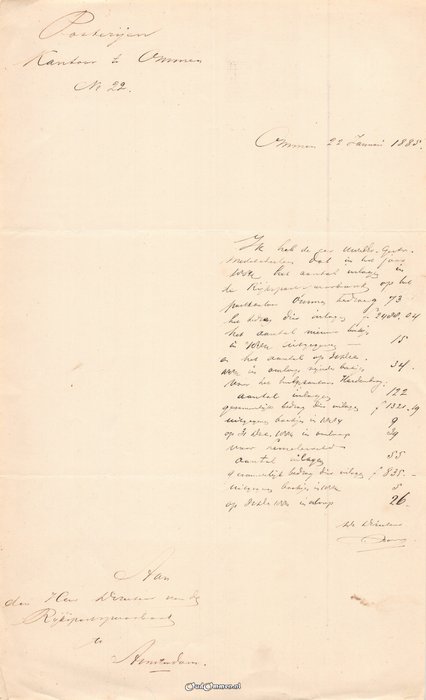 Posterijen
Kantoor te Ommen
No 22.
Ommen 22 Januari 1885.
Ik heb de eer
mededeelen dat in het jaar
1884 het aantal inlagen in
de Rijkspostspaarbank op het
postkantoor Ommen bedroeg 73
die inlagen f 3480.04
het aantal nieuwe
in 1884 uitgegeven 15
en het aantal op
1884 in omloop zijnde boekjes 34.
voor het hulpkantoor Hardenberg
aantal inlagen 122
gezamenlijk bedrag der inlagen f 1321.19
uitgegeven boekjes in 1884 9
op 31 Dec. 1884 in omloop 39
voor
aantal inlagen 55
gezamenlijk bedrag der inlagen f 835.-
uitgegeven boekjes in 1884 5
op 1884 in omloop 26.
De Directeur
Aan
den Heer Directeur van de
Rijkspostspaarbank
te
Amsterdam.
OudOmmen.nl